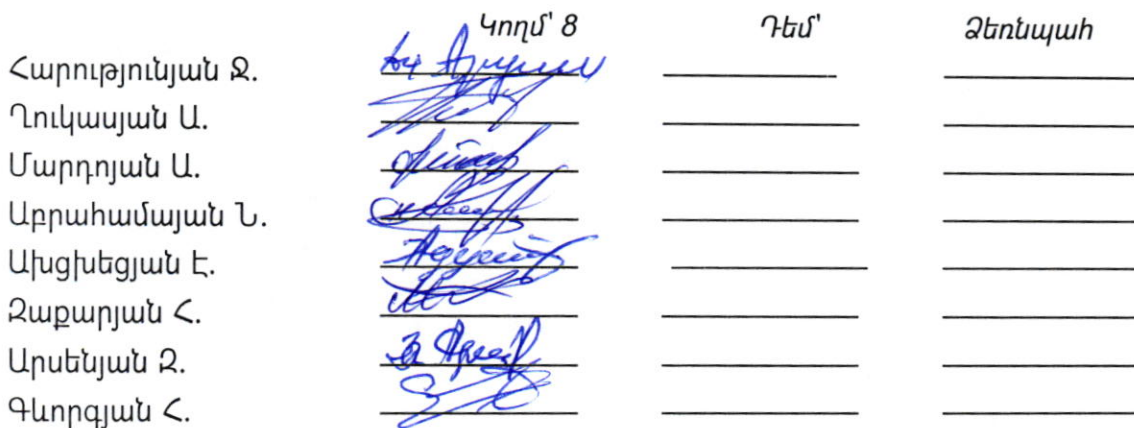 Կողմ՝ 8 Դեմ՝ Ձեռնպահ
Հարությունյան Ջ.
Ղուկասյան Ա.
Մարդոյան Ա.
Աբրահամայան Ն.
Ախցխեցյան Է.
Զաքարյան Հ.
Արսենյան Զ.
Գևորգյան Հ.